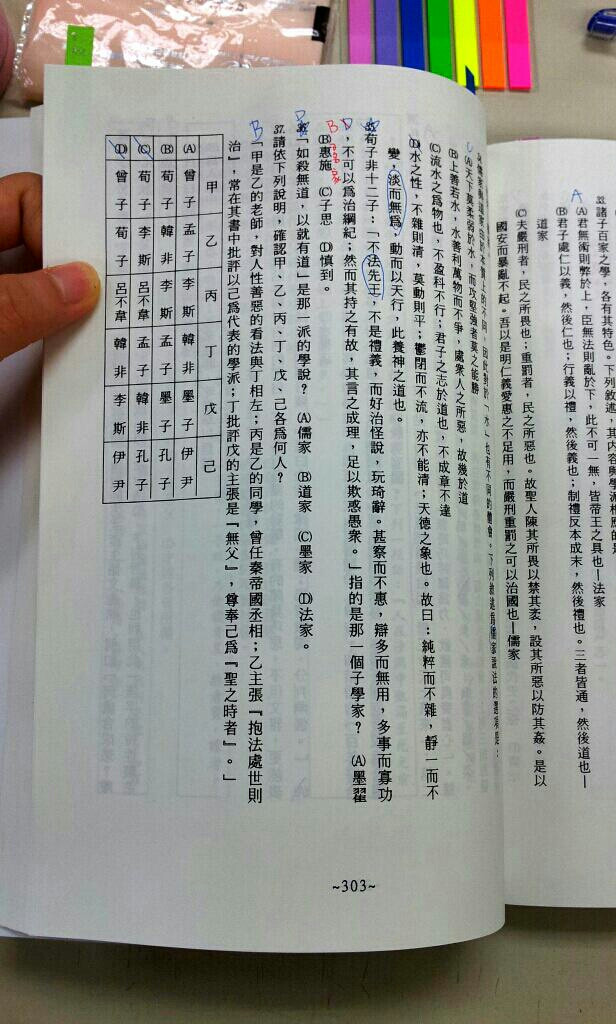 33. 諸子百家之學，各有其特色。下列敘述，其內容與學派相應的是
A
(A)君無術則弊於上，臣無法則亂於下，此不可一無，皆帝王之具也—法家
(B)君子處仁以義，然後仁也；行義以禮，然後義也；制禮反本成末，然後禮也。三者皆通，然後道也—
道家
(C)夫嚴刑者，民之所畏也；重罰者，民之所惡也。故聖人陳其所畏以禁其衺，設其所惡以防其姦。是以
國安而暴亂不起。吾以是明仁義愛惠之不足用，而嚴刑重罰之可以治國也—儒家
本質上的不同，因此對於「水」也有不同的體會。下列敘述為儒家說法的選項是：
C
(A)天下莫柔弱於水，而攻堅強者莫之能勝
(B)上善若水，水善利萬物而不爭，處眾人之所惡，故幾於道
(C)流水之為物也，不盈科不行；君子之志於道也，不成章不達
(D)水之性，不雜則清，莫動則平；鬱閉而不流，亦不能清；天德之象也。故曰：純粹而不雜，靜一而不
變，淡而無為，動而以天行，此養神之道也。
35. 荀子非十二子：「不法先王，不是禮義，而好治怪說，玩琦辭。甚察而不惠，辯多而無用，多事而寡功
，不可以為治綱紀；然而其持之有故，其言之成理，足以欺惑愚眾。」指的是那一個子學家？ (A)墨翟
B
(B)惠施 (C)子思 (D)慎到。
36. 「如殺無道，以就有道」是那一派的學說？ (A)儒家 (B)道家 (C)墨家 (D)法家。
37. 請依下列說明，確認甲、乙、丙、丁、戊、己各為何人？
B
「甲是乙的老師，對人性善惡的看法與丁相左；丙是乙的同學，曾任秦帝國丞相；乙主張『抱法處世則
治』，常在其書中批評以己為代表的學派；丁批評戊的主張是『無父』，尊奉己為『聖之時者』。」
甲 乙 丙 丁 戊 己
(A) 曾子 孟子 李斯 墨子 伊尹
(B) 荀子 韓非 李斯 孟子 墨子 孔子
(C) 荀子 李斯 呂不韋 孟子 韓非 孔子
(D) 曾子 荀子 呂不韋 韓非 李斯 伊尹
~303~